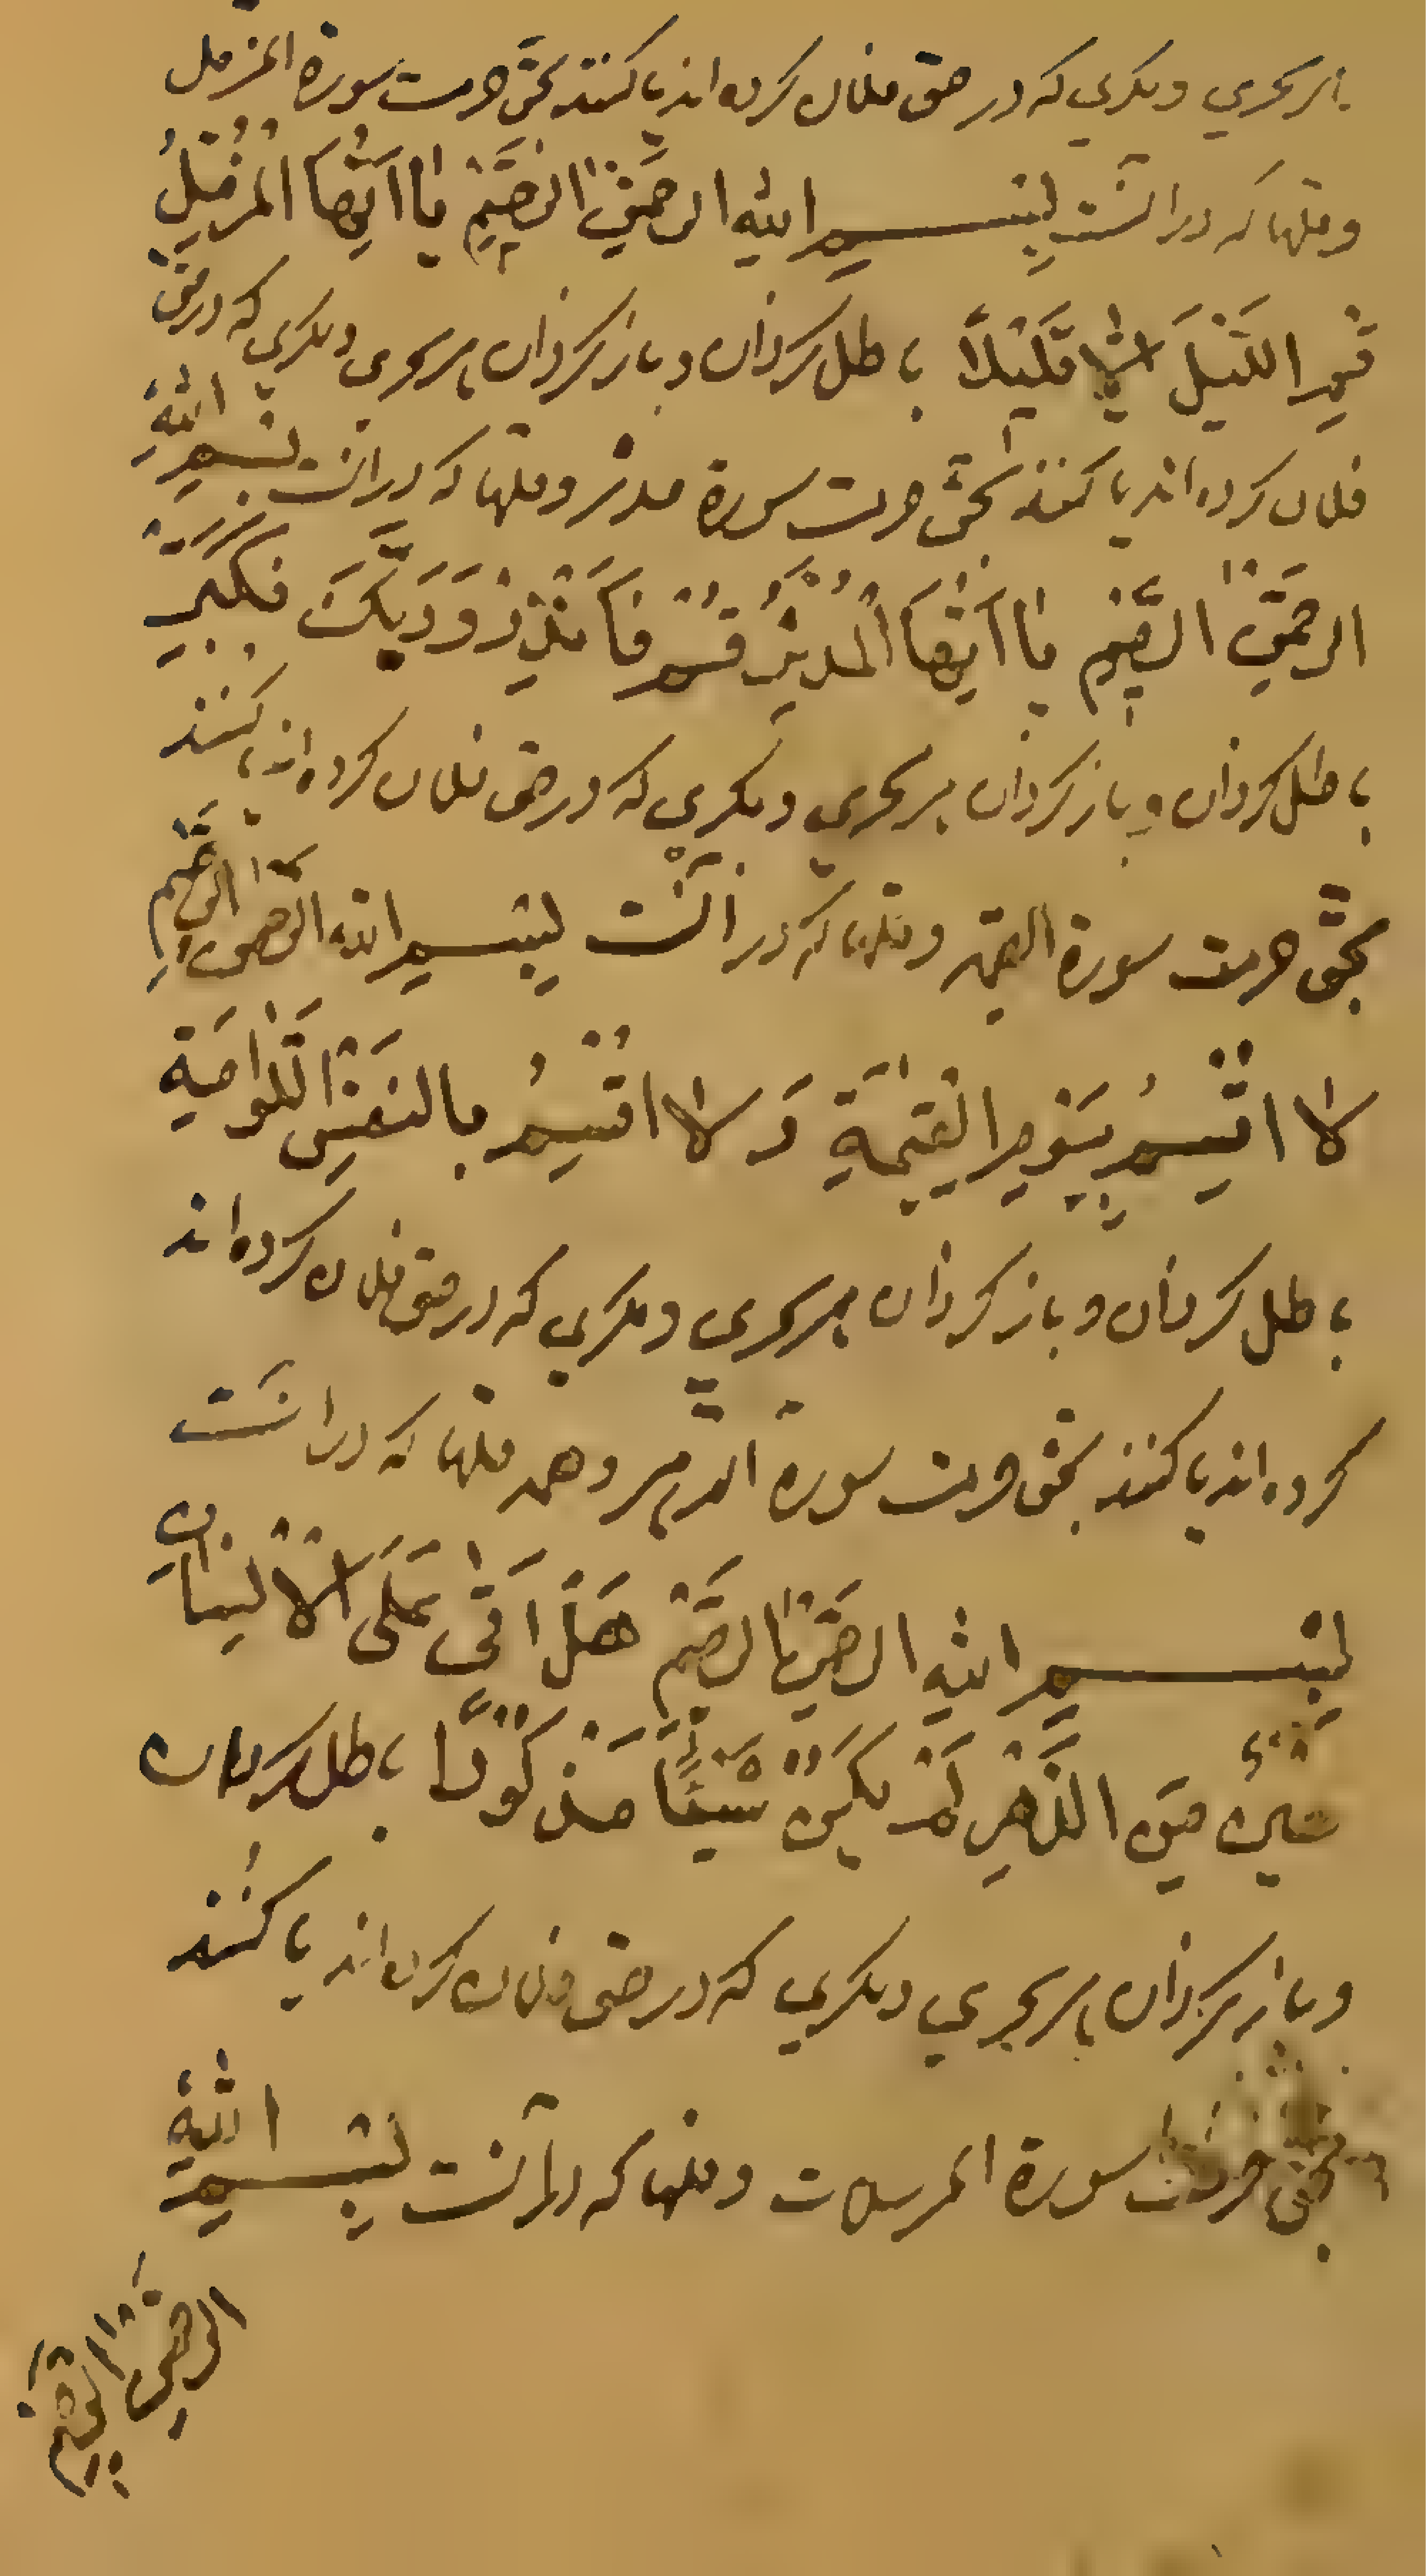 هر سحری و مکری که در حق فلان کرده اند یا کنند بحق حرمت سورة المزمل
و فلها که در انست بِسْمِ اللهِ الرحمنِ الرحِيمِ يَا اَيُّهَا الْمُزَّمِّلُ
قُمِ اللَّيْلَ اِلَّا قَلِيْلًا باطل کردان و باز کردان هر سحری و مکری که در حق
فلان کرده اند یا کنند بحق حرمت سورة مدثر و فلها که در انست بِسْمِ اللهِ
الرحمنِ الرحِيمِ يَا اَيُّهَا الْمُدَّثِّرُ قُمْ فَاَنْذِرْ وَرَبَّكَ فَكَبِّرْ
باطل کردان و باز کردان هر سحری و مکری که در حق فلان کرده اند یا کنند
بحق حرمت سورة القیمة و فلها که در آنست بِسْمِ الله الرحمن الرحیم
لا اُقْسِمُ بِيَوْمِ الْقِيٰمَةِ وَلا اُقْسِمُ بِالنَفْسِ اللَّوَامَةِ
باطل کردان و باز کردان هر سحری و مکری که در حق فلان کرده اند
کرده اند یا کنند بحق حرمت سورة الدهر وهمه فلها که در انست
بِسْمِ اللهِ الرحمنِ الرحِيمِ هَلْ اَتٰى عَلَى الْاِنْسَانِ
حِيْنٌ مِنَ الدَّهْرِ لَمْ يَكُنْ شَيْئًا مَذْكُوْرًا باطل کردان
و باز کردان هر سحری و مکری که در حق فلان کرده اند یا کنند
بحق حرمت سورة المرسلات و فلها که در آنست بِسْمِ اللهِ
الرحمن الرحیم